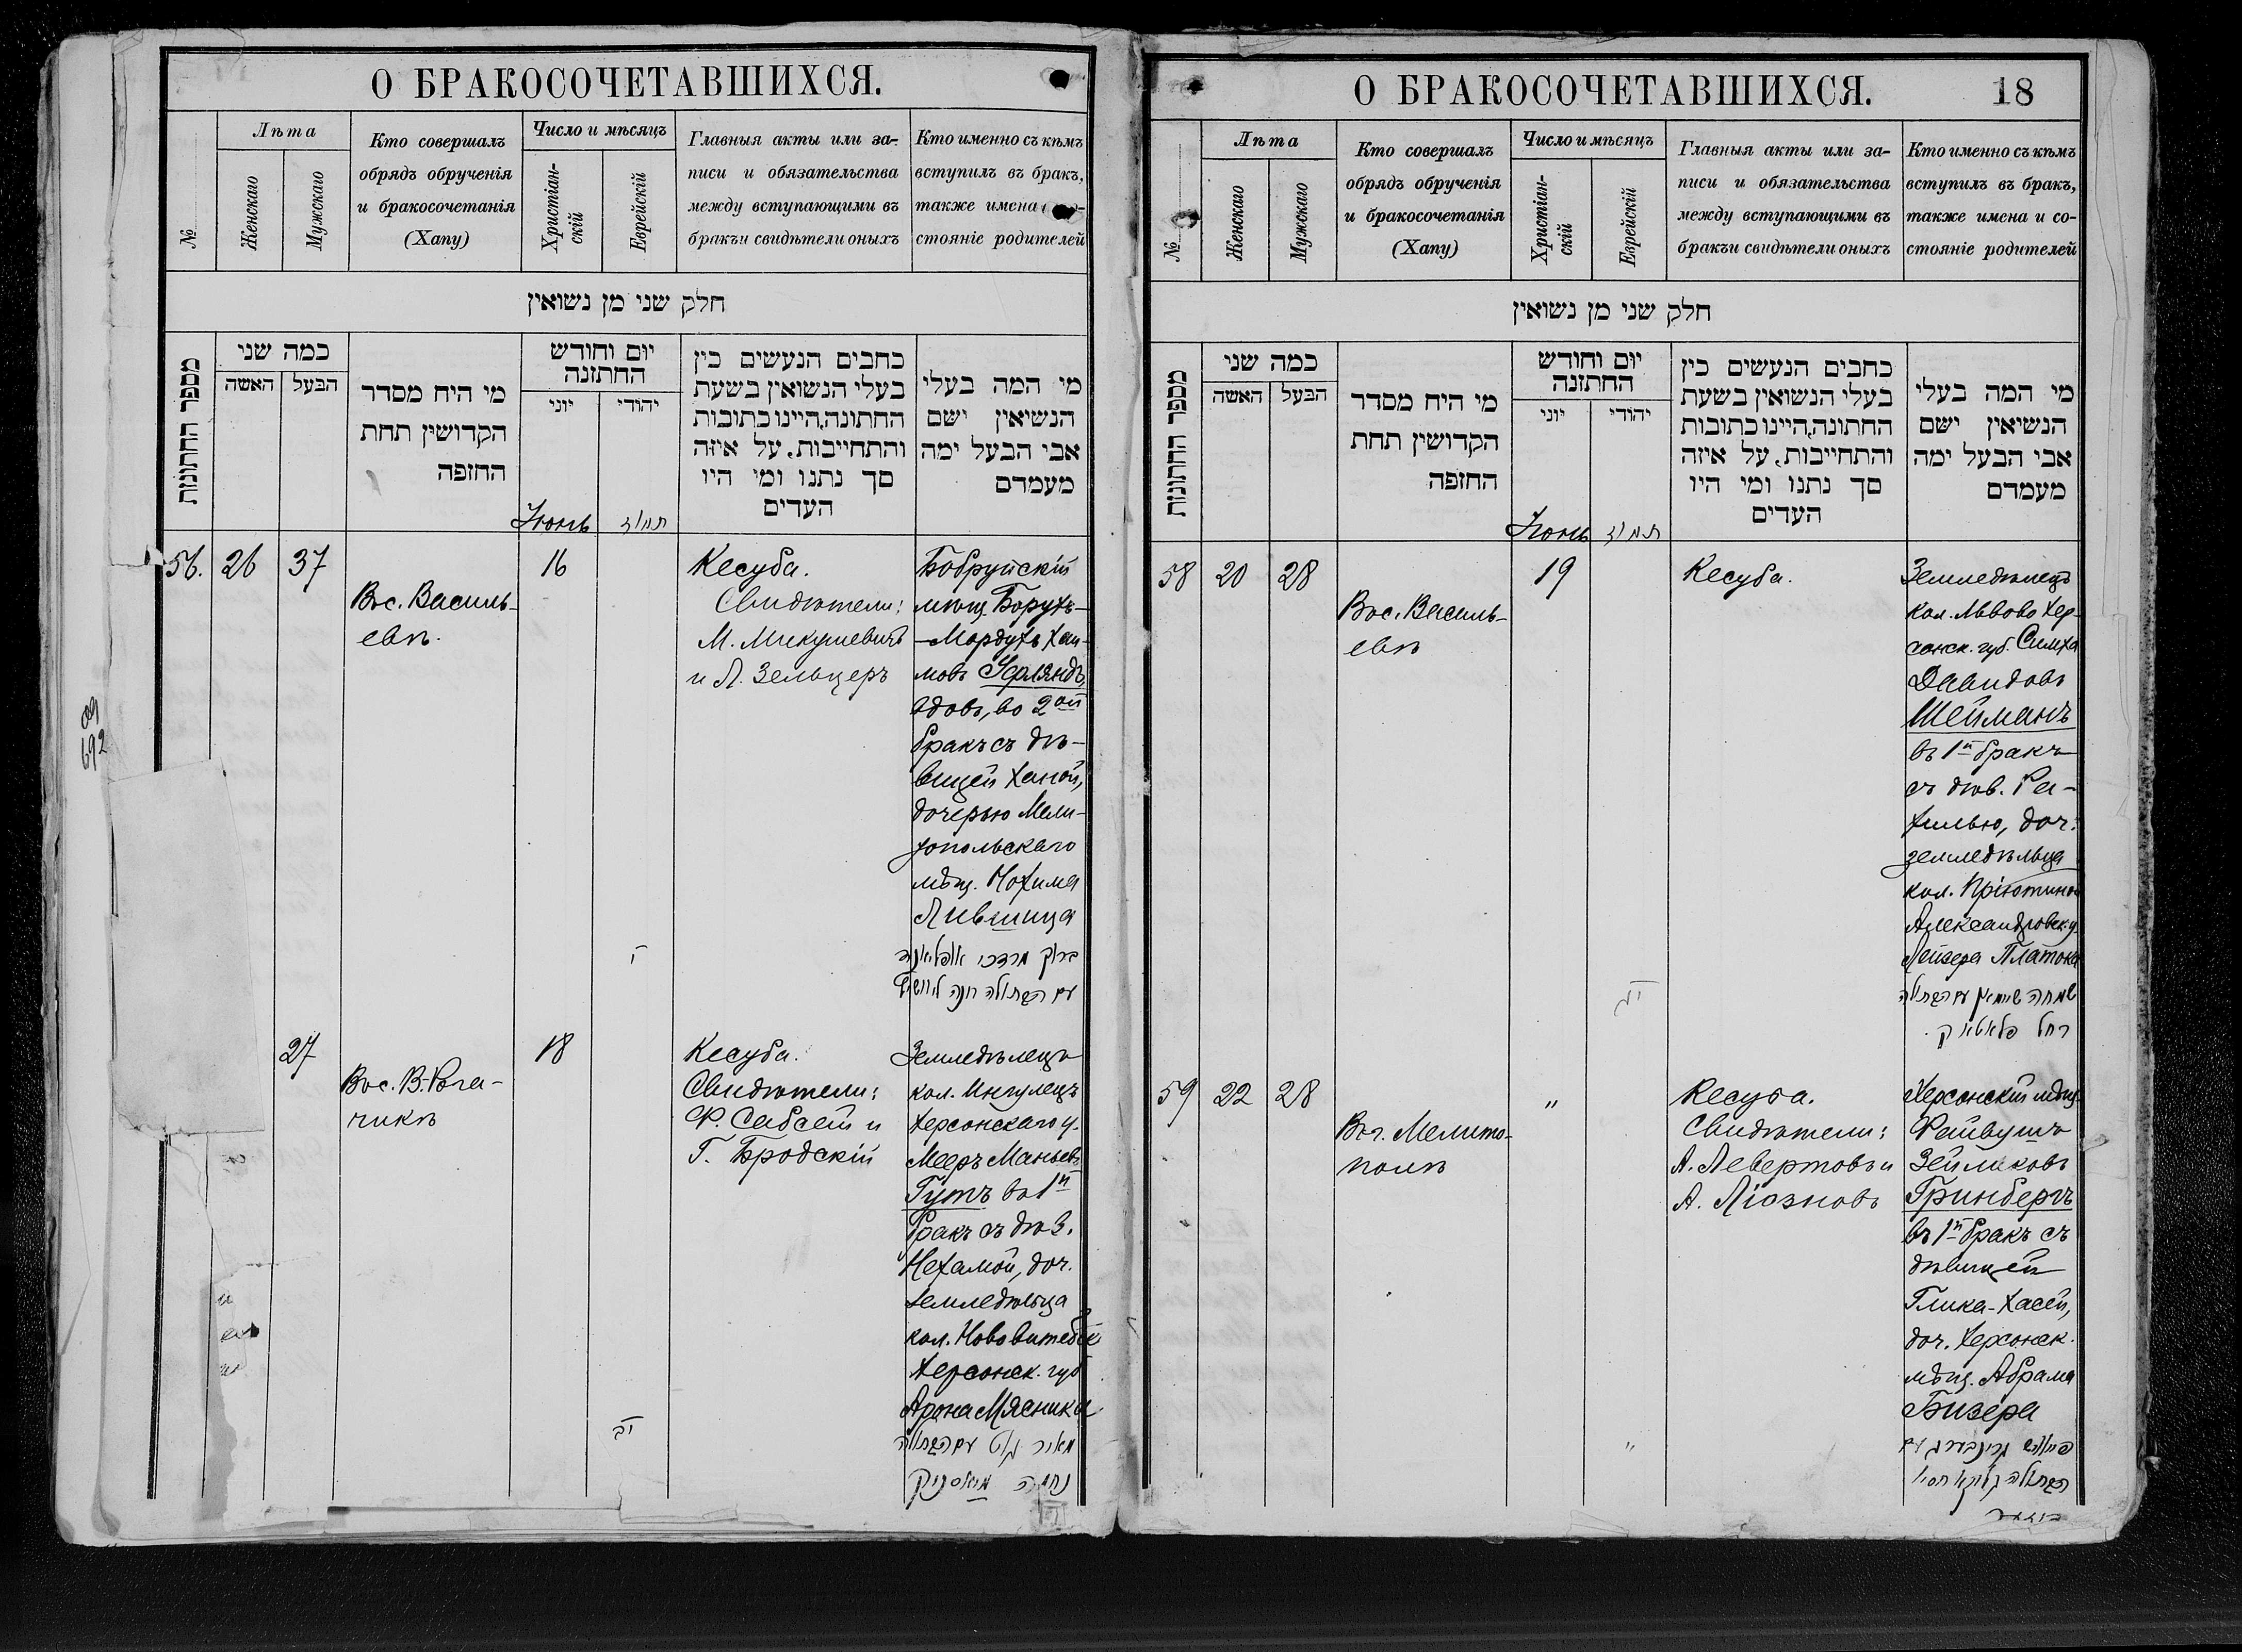 О БРАКОСОЧЕТАВШИХСЯ.
№
Лѣта
Женскаго
Мужскаго
Кто совершалъ
обрядъ обрученія
и бракосочетанія
(Хапу)
Число и мѣсяцъ
Христіан-
скій
Еврейскій
Главныя акты или за-
писи и обязательства
между вступающими въ
бракъ и свидѣтели оныхъ
Кто именно съ кѣмъ
вступилъ въ бракъ,
также имена
стояніе родителей
חלק שני מן נשואין
מספר החתונות
כמה שני
האשה
הבעל
מי היח מסדר
הקדושין תחת
החזפה
יום וחודש
החתזנה
יוני
יהודי
כחבים הנעשים כין
בעלי הנשואין בשעת
החתונה, היינו כתובות
והתחייבות, על איזה
סך נתנו ומי היו
העדים
מי המה בעלי
הנשיאין ישם
אבי הבעל ימה
מעמדם
Іюнь
תמוז
56.
26
37
Вос. Василь-
евѣ.
16
Кесуба.
Свидѣтели:
М. Микулевичъ
и Л. Зельцеръ
Бобруйскій
мѣщ. Борухъ-
-Мордухъ Хаи-
мовъ
вдовъ, во 2ой
бракъ съ дѣ-
вицей Ханой,
дочерью Мели-
топольскаго
мѣщ. Нохима
Лившица
י
ברוך מרדכי
עם הבתולה חנה ליוושיץ
27
Вос. В.-Рога-
чикѣ
18
Кесуба.
Свидѣтели:
Ф. Сабсей и
Г. Бродскій
Земледѣлецъ
кол. Ингулецъ
Херсонскаго у.
Мееръ Маньевъ
Гутъ въ 1й
бракъ съ дѣв.
Нехамой, доч.
земледѣльца
кол. Ново Витебск
Херсонск. губ
Арона Мясника
יב
מאיר גוט עם הבתולה
נחמה מיאסניק
О БРАКОСОЧЕТАВШИХСЯ.
18
№
Лѣта
Женскаго
Мужскаго
Кто совершалъ
обрядъ обрученія
и бракосочетанія
(Хапу)
Число и мѣсяцъ
Христіан-
скій
Еврейскій
Главныя акты или за-
писи и обязательства
между вступающими въ
бракъ и свидѣтели оныхъ
Кто именно съ кѣмъ
вступилъ въ бракъ,
также имена и со-
стояніе родителей
חלק שני מן נשואין
מספר החתונות
כמה שני
האשה
הבעל
מי היח מסדר
הקדושין תחת
החזפה
יום וחודש
החתזנה
יוני
יהודי
כחבים הנעשים כין
בעלי הנשואין בשעת
החתונה, היינו כתובות
והתחייבות, על איזה
סך נתנו ומי היו
העדים
מי המה בעלי
הנשיאין ישם
אבי הבעל ימה
מעמדם
Іюнь
תמוז
58
20
28
Вос. Василь-
евѣ
19
Кесуба.
Земледѣлецъ
кол. Львово Хер-
сонск. губ. Симха
Давидовъ
Шейманъ
въ 1й бракъ
съ дѣв. Ра-
хилью, доч.
земледѣльца
кол. Пріютиной
Александровск. у.
Лейзера Платока
יג
שמחה שיימאן עם הבתולה
רחל פלאטאק.
59
22
28
Вос. Мелито-
полѣ
"
Кесуба.
Свидѣтели:
А. Левертовъ и
А. Ліозновъ
Херсонскій мѣщ.
Файвушъ
Зейликовъ
Гринбергъ
въ 1й бракъ съ
дѣвицей
Глика-Хасей,
доч. Херсонск.
мѣщ. Абрама
Бизера
"
פייוויש גרינבערג עם
הבתולה גליקא חסיא
ביזער